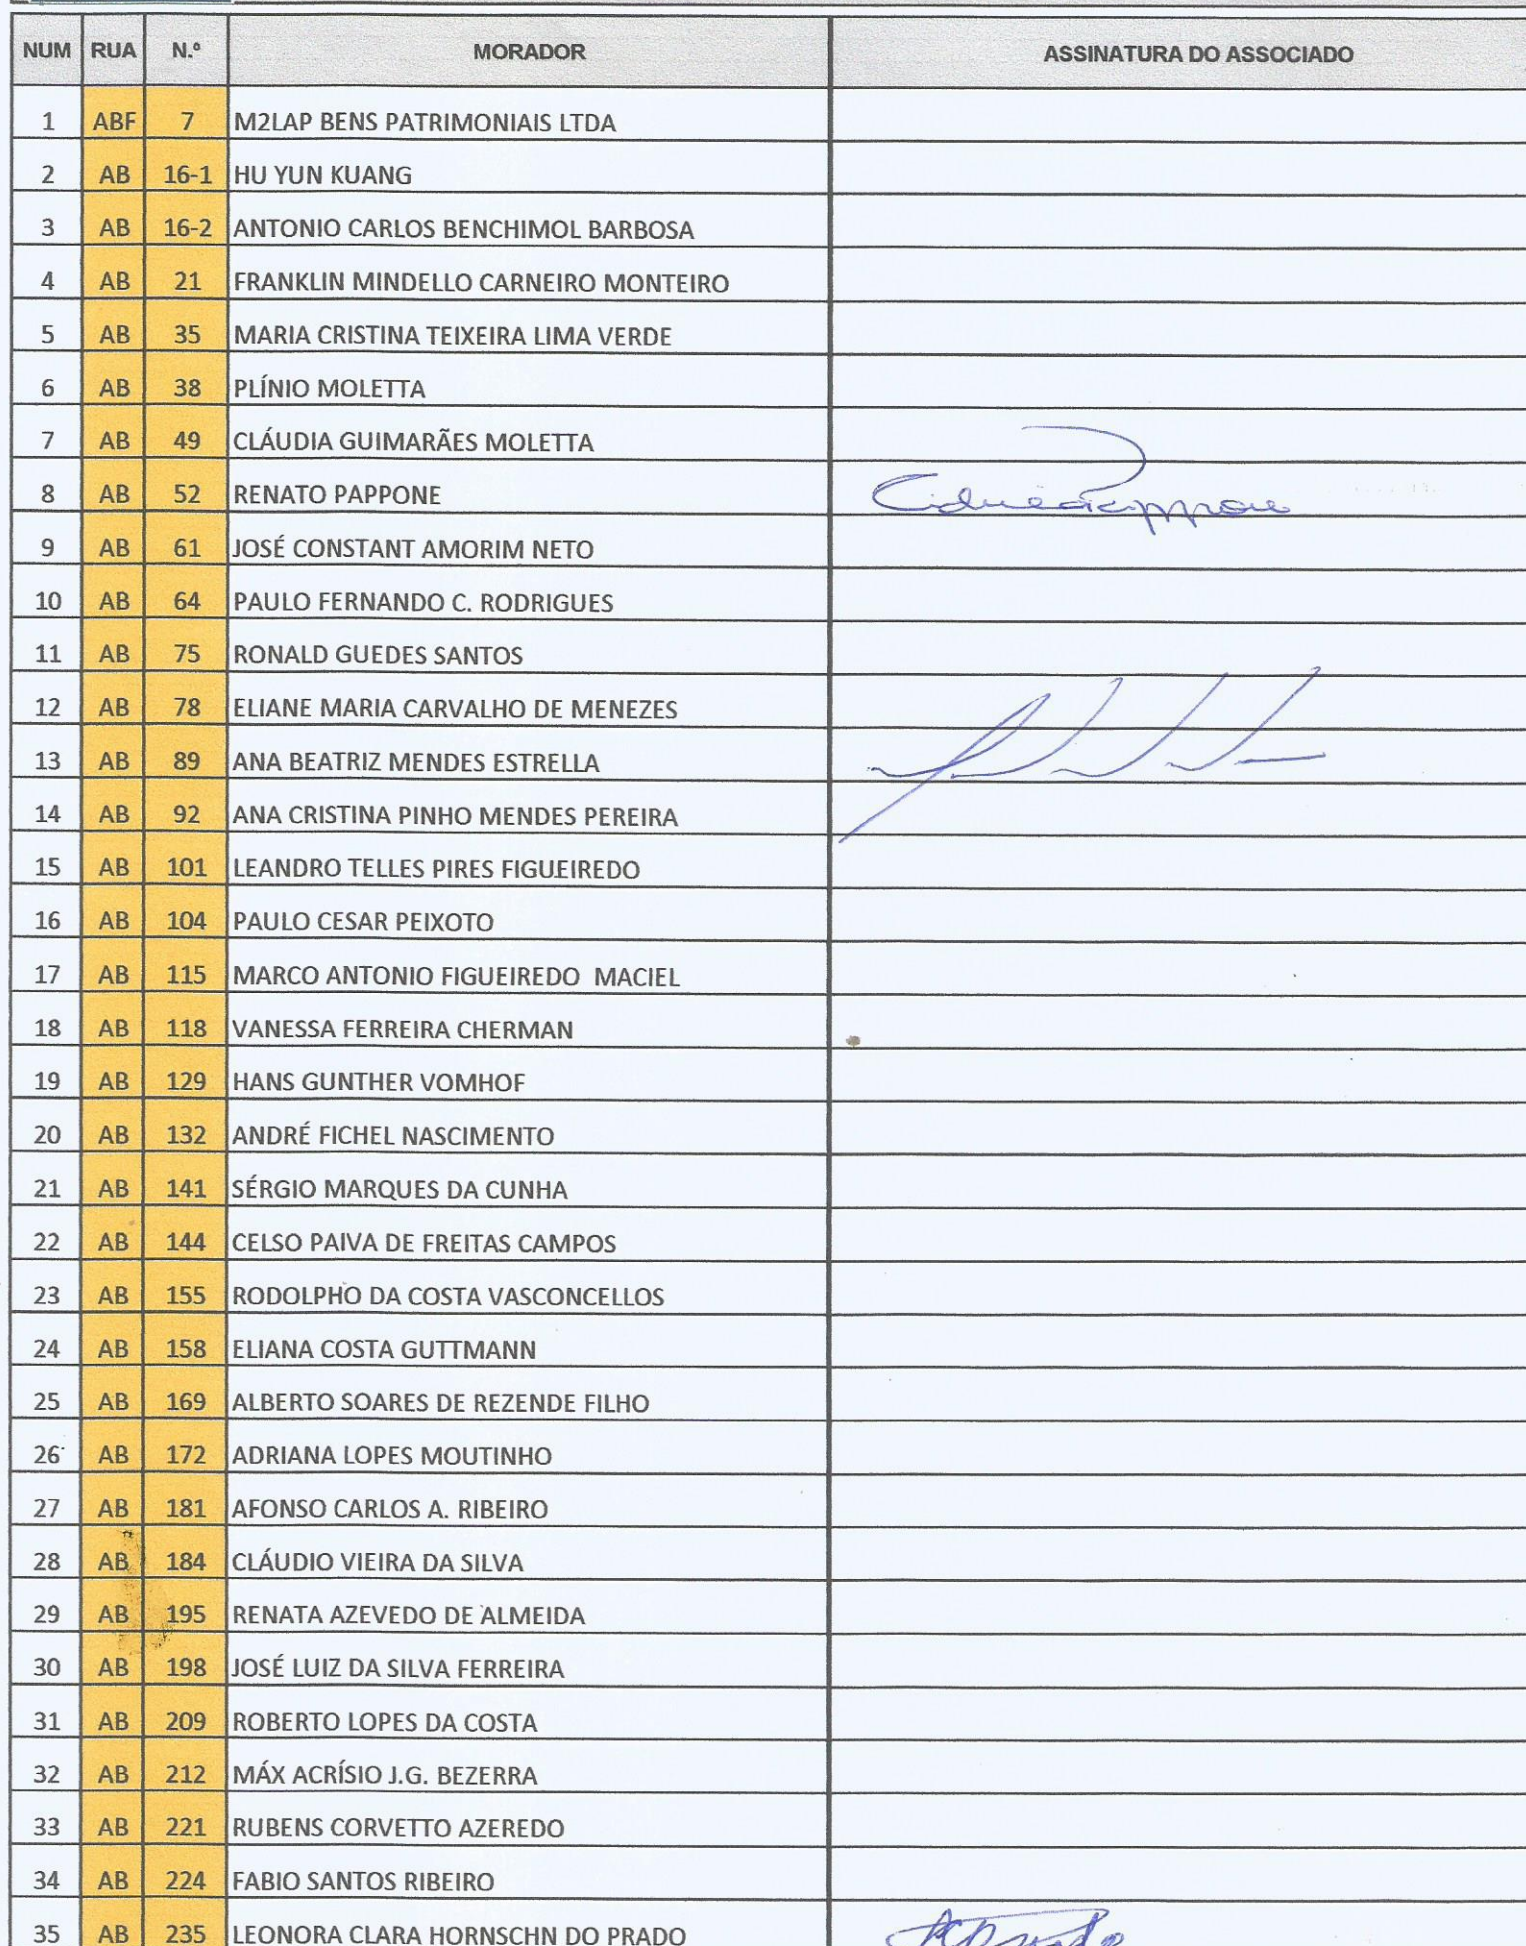 NUM RUA N.º MORADOR ASSINATURA DO ASSOCIADO
1 ABF 7 M2LAP BENS PATRIMONIAIS LTDA
2 AB 16-1 HU YUN KUANG
3 AB 16-2 ANTONIO CARLOS BENCHIMOL BARBOSA
4 AB 21 FRANKLIN MINDELLO CARNEIRO MONTEIRO
5 AB 35 MARIA CRISTINA TEIXEIRA LIMA VERDE
6 AB 38 PLÍNIO MOLETTA
7 AB 49 CLÁUDIA GUIMARÃES MOLETTA
8 AB 52 RENATO PAPPONE
9 AB 61 JOSÉ CONSTANT AMORIM NETO
10 AB 64 PAULO FERNANDO C. RODRIGUES
11 AB 75 RONALD GUEDES SANTOS
12 AB 78 ELIANE MARIA CARVALHO DE MENEZES
13 AB 89 ANA BEATRIZ MENDES ESTRELLA
14 AB 92 ANA CRISTINA PINHO MENDES PEREIRA
15 AB 101 LEANDRO TELLES PIRES FIGUEIREDO
16 AB 104 PAULO CESAR PEIXOTO
17 AB 115 MARCO ANTONIO FIGUEIREDO MACIEL
18 AB 118 VANESSA FERREIRA CHERMAN
19 AB 129 HANS GUNTHER VOMHOF
20 AB 132 ANDRÉ FICHEL NASCIMENTO
21 AB 141 SÉRGIO MARQUES DA CUNHA
22 AB 144 CELSO PAIVA DE FREITAS CAMPOS
23 AB 155 RODOLPHO DA COSTA VASCONCELLOS
24 AB 158 ELIANA COSTA GUTTMANN
25 AB 169 ALBERTO SOARES DE REZENDE FILHO
26 AB 172 ADRIANA LOPES MOUTINHO
27 AB 181 AFONSO CARLOS A. RIBEIRO
28 AB 184 CLÁUDIO VIEIRA DA SILVA
29 AB 195 RENATA AZEVEDO DE ALMEIDA
30 AB 198 JOSÉ LUIZ DA SILVA FERREIRA
31 AB 209 ROBERTO LOPES DA COSTA
32 AB 212 MÁX ACRÍSIO J.G. BEZERRA
33 AB 221 RUBENS CORVETTO AZEREDO
34 AB 224 FABIO SANTOS RIBEIRO
35 AB 235 LEONORA CLARA HORNSCHN DO PRADO